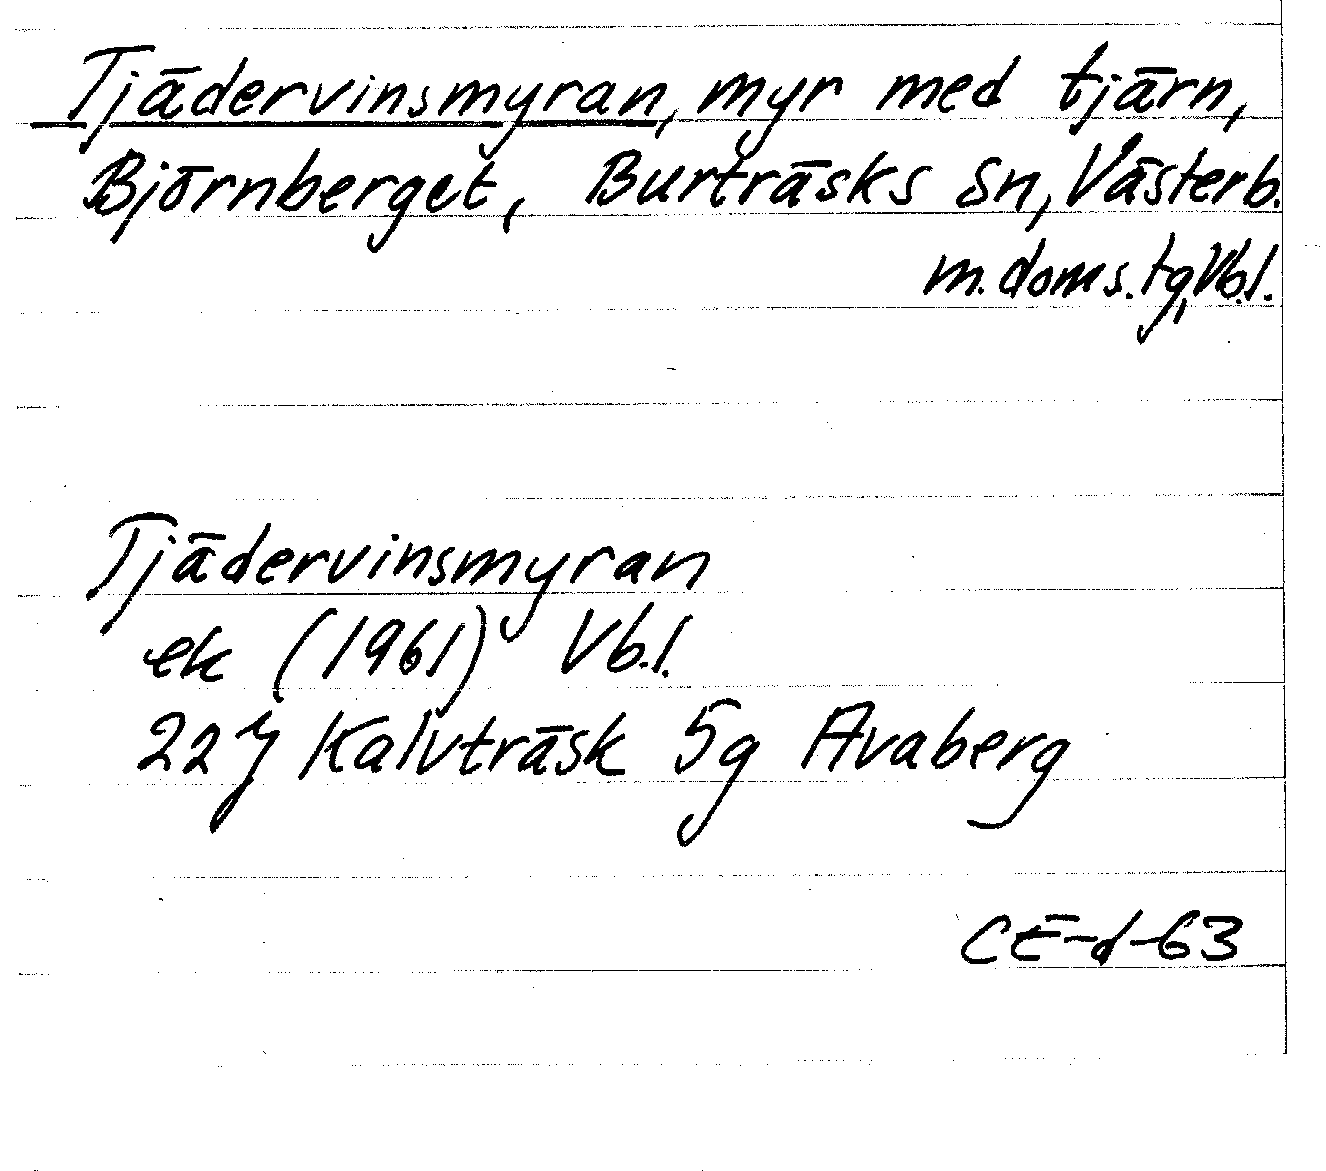 Tjädervinsmyran, myr med tjärn,
Björnberget, Burträsks sn, Västerb.
m. doms. tg, Vb.l.
Tjädervinsmyran
ek (1961) Vb.l.
22 J Kalvträsk 5g Avaberg
CE-d-63